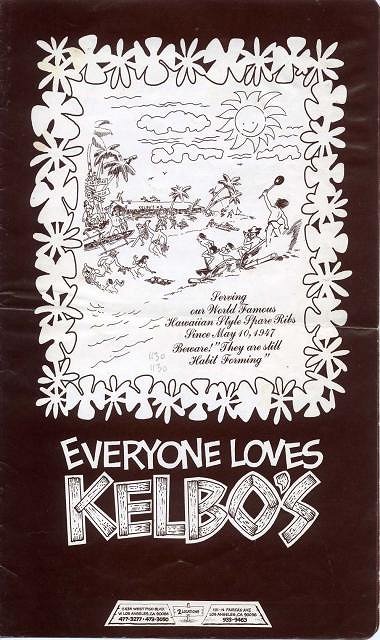 KELBO'S
Serving
our World Famous
Hawaiian Style Spare Ribs
Since May 10, 1947
Beware! "They are still
Habit Forming"
1130
1130
EVERYONE LOVES
KELBO'S
WEST PICO BLVD.
W. LOS ANGELES, CA 90064
477-3277 • 473-3050
2 LOCATIONS
101 N. FAIRFAX AVE
LOS ANGELES, CA 90036
935-9463